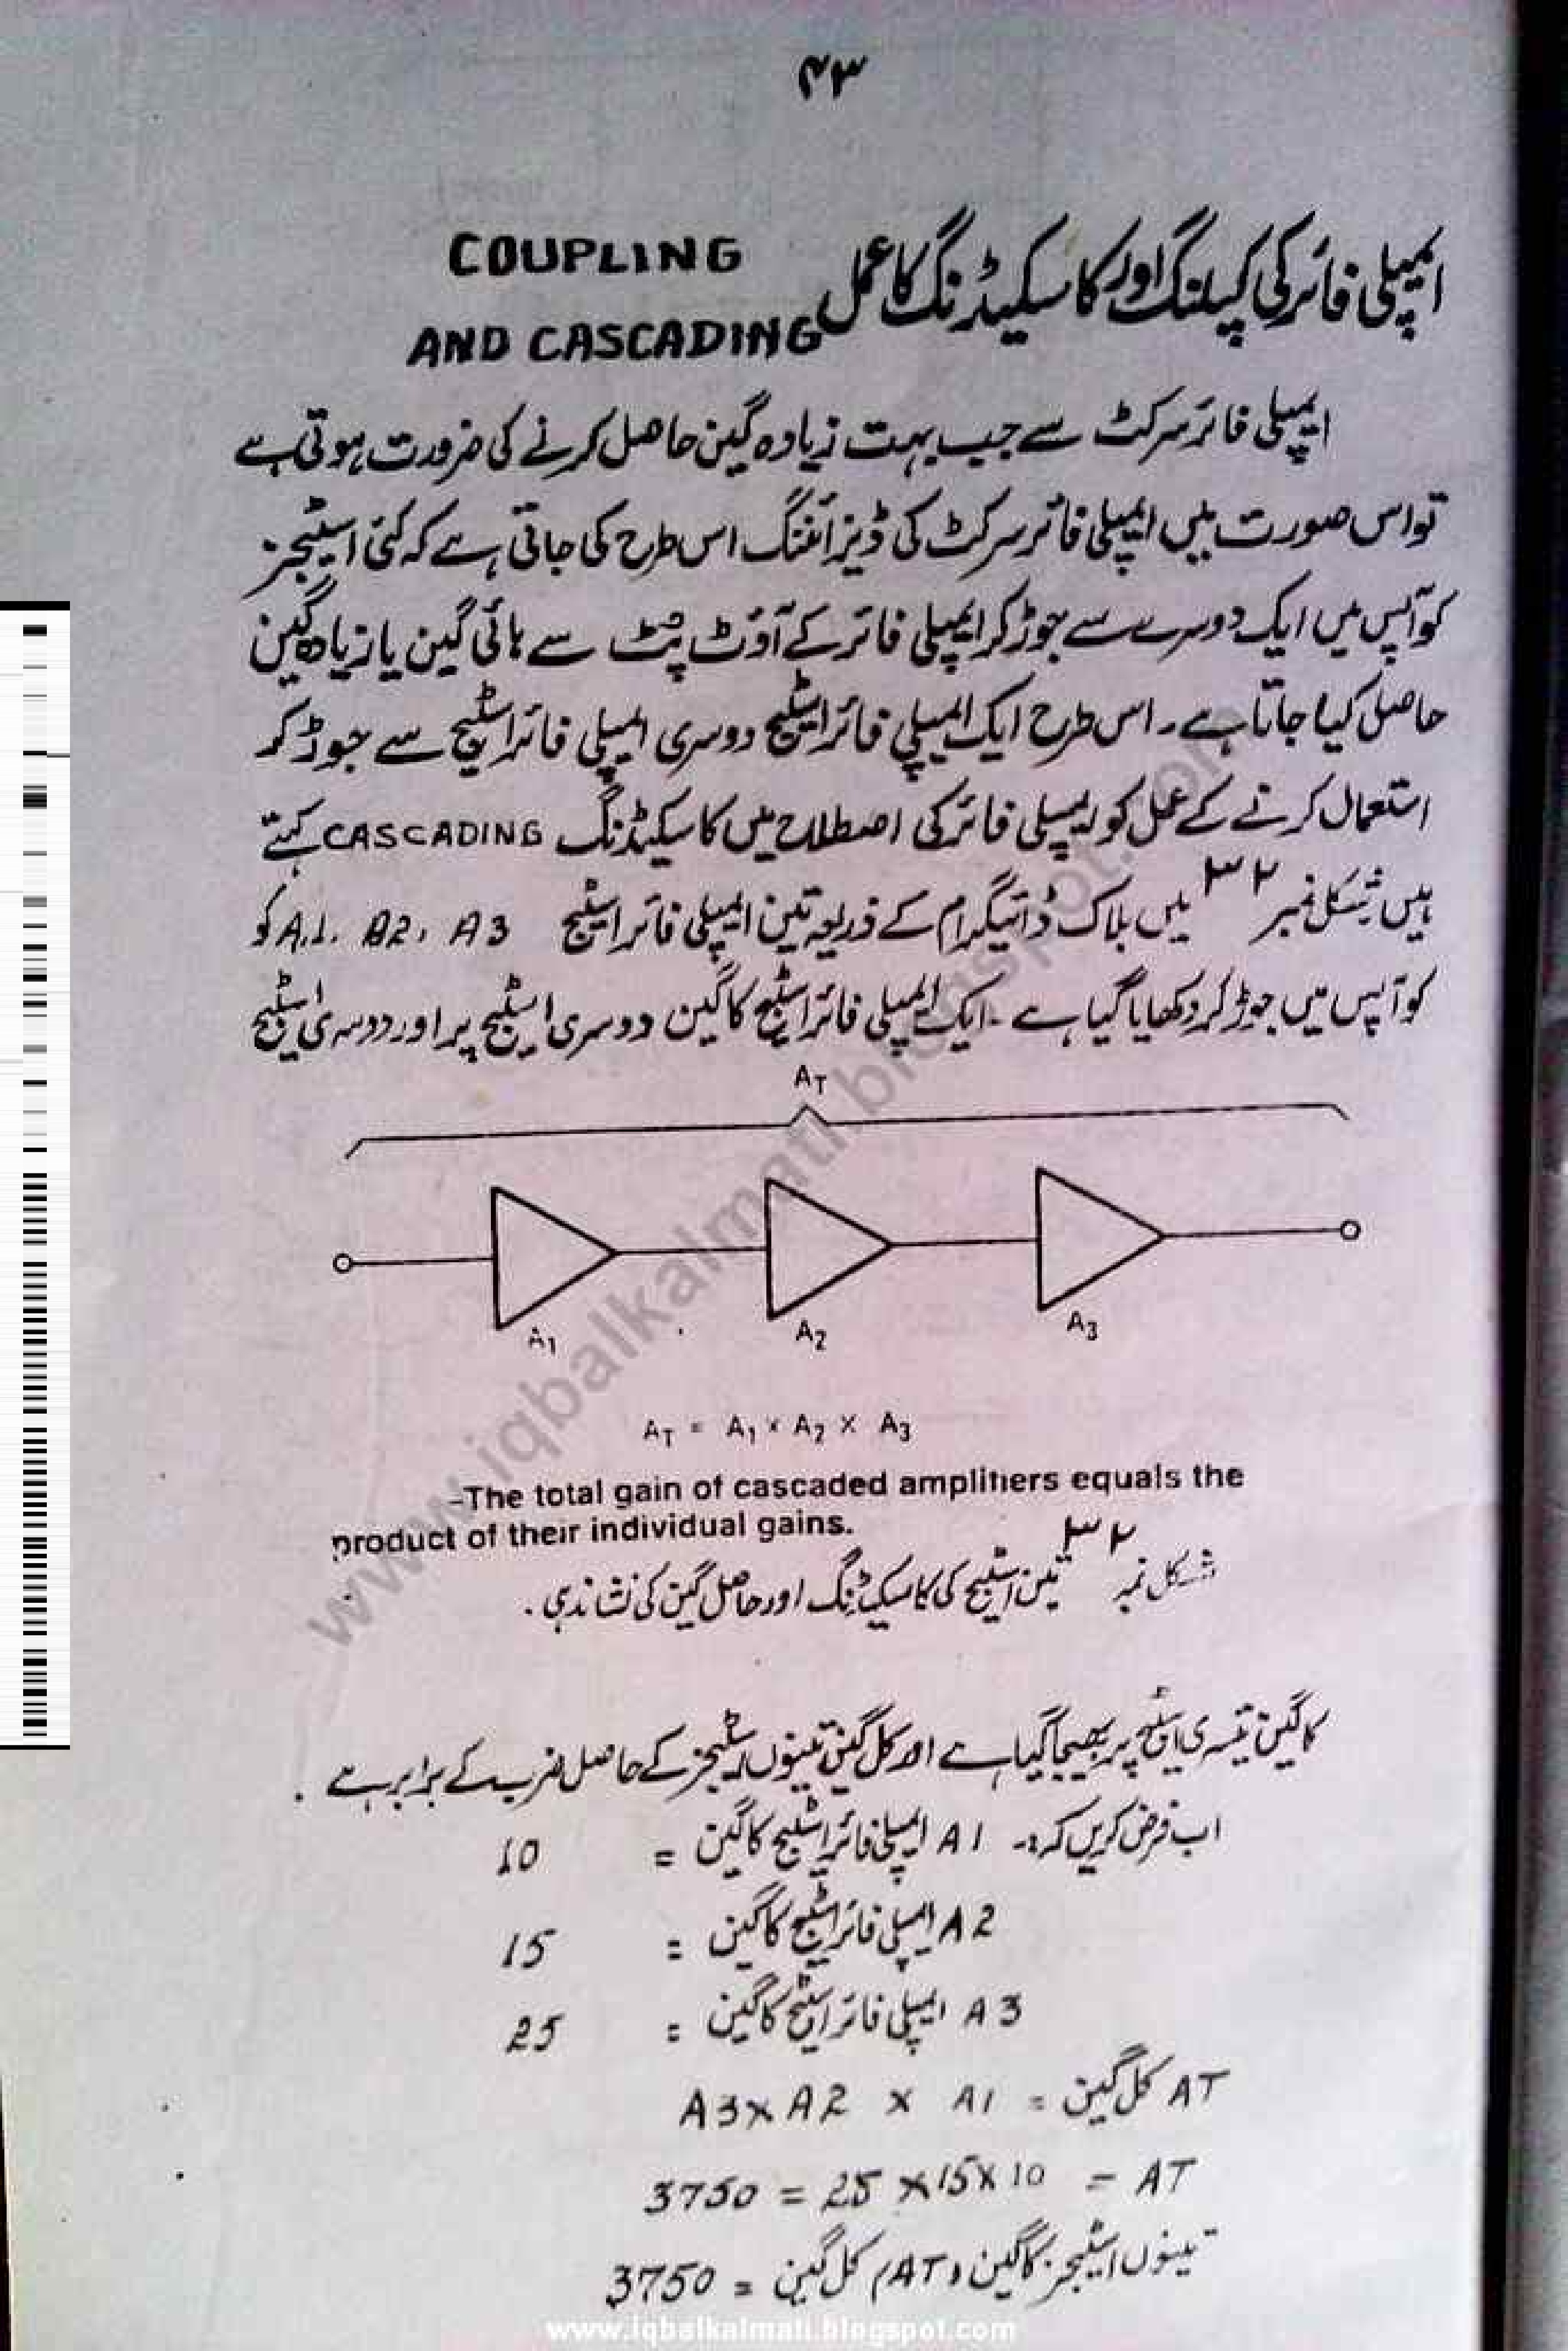 ۴۳
ایمپلی فائر کی کپلنگ اور کاسکیڈنگ کا عمل COUPLING
AND CASCADING
ایمپلی فائر سرکٹ سے جب بہت زیادہ گین حاصل کرنے کی ضرورت ہوتی ہے
تو اس صورت میں ایمپلی فائر سرکٹ کی ڈیزائننگ اس طرح کی جاتی ہے کہ کئی اسٹیجز
کو آپس میں ایک دوسرے سے جوڑ کر ایمپلی فائر کے آؤٹ پٹ سے ہائی گین یا زیادہ گین
حاصل کیا جاتا ہے۔ اس طرح ایک ایمپلی فائر اسٹیج دوسری ایمپلی فائر اسٹیج سے جوڑ کر
استعمال کرنے کے عمل کو ایمپلی فائر کی اصطلاح میں کاسکیڈنگ CASCADING کہتے
ہیں شکل نمبر ۳۲ میں بلاک ڈائیگرام کے ذریعہ تین ایمپلی فائر اسٹیج A1, A2, A3 کو
کو آپس میں جوڑ کر دکھایا گیا ہے ۔ ایک ایمپلی فائر اسٹیج کا گین دوسری اسٹیج پر اور دوسری اسٹیج
AT
A1
A2
A3
AT = A1 × A2 × A3
–The total gain of cascaded amplifiers equals the
product of their individual gains.
شکل نمبر ۳۲ تین اسٹیج کی کاسکیڈنگ اور حاصل گین کی نشاندہی .
کا گین تیسری اسٹیج پر بھیجا گیا ہے اور کل گین تینوں اسٹیجز کے حاصل ضرب کے برابر ہے .
اب فرض کریں کہ:۔ A1 ایمپلی فائر اسٹیج کا گین = 10
A2 ایمپلی فائر اسٹیج کا گین = 15
A3 ایمپلی فائر اسٹیج کا گین = 25
AT کل گین = A1 × A2 × A3
3750 = 25 × 15 × 10 = AT
تینوں اسٹیجز کا گین (AT) کل گین = 3750
www.iqbalkalmati.blogspot.com
www.iqbalkalmati.blogspot.com